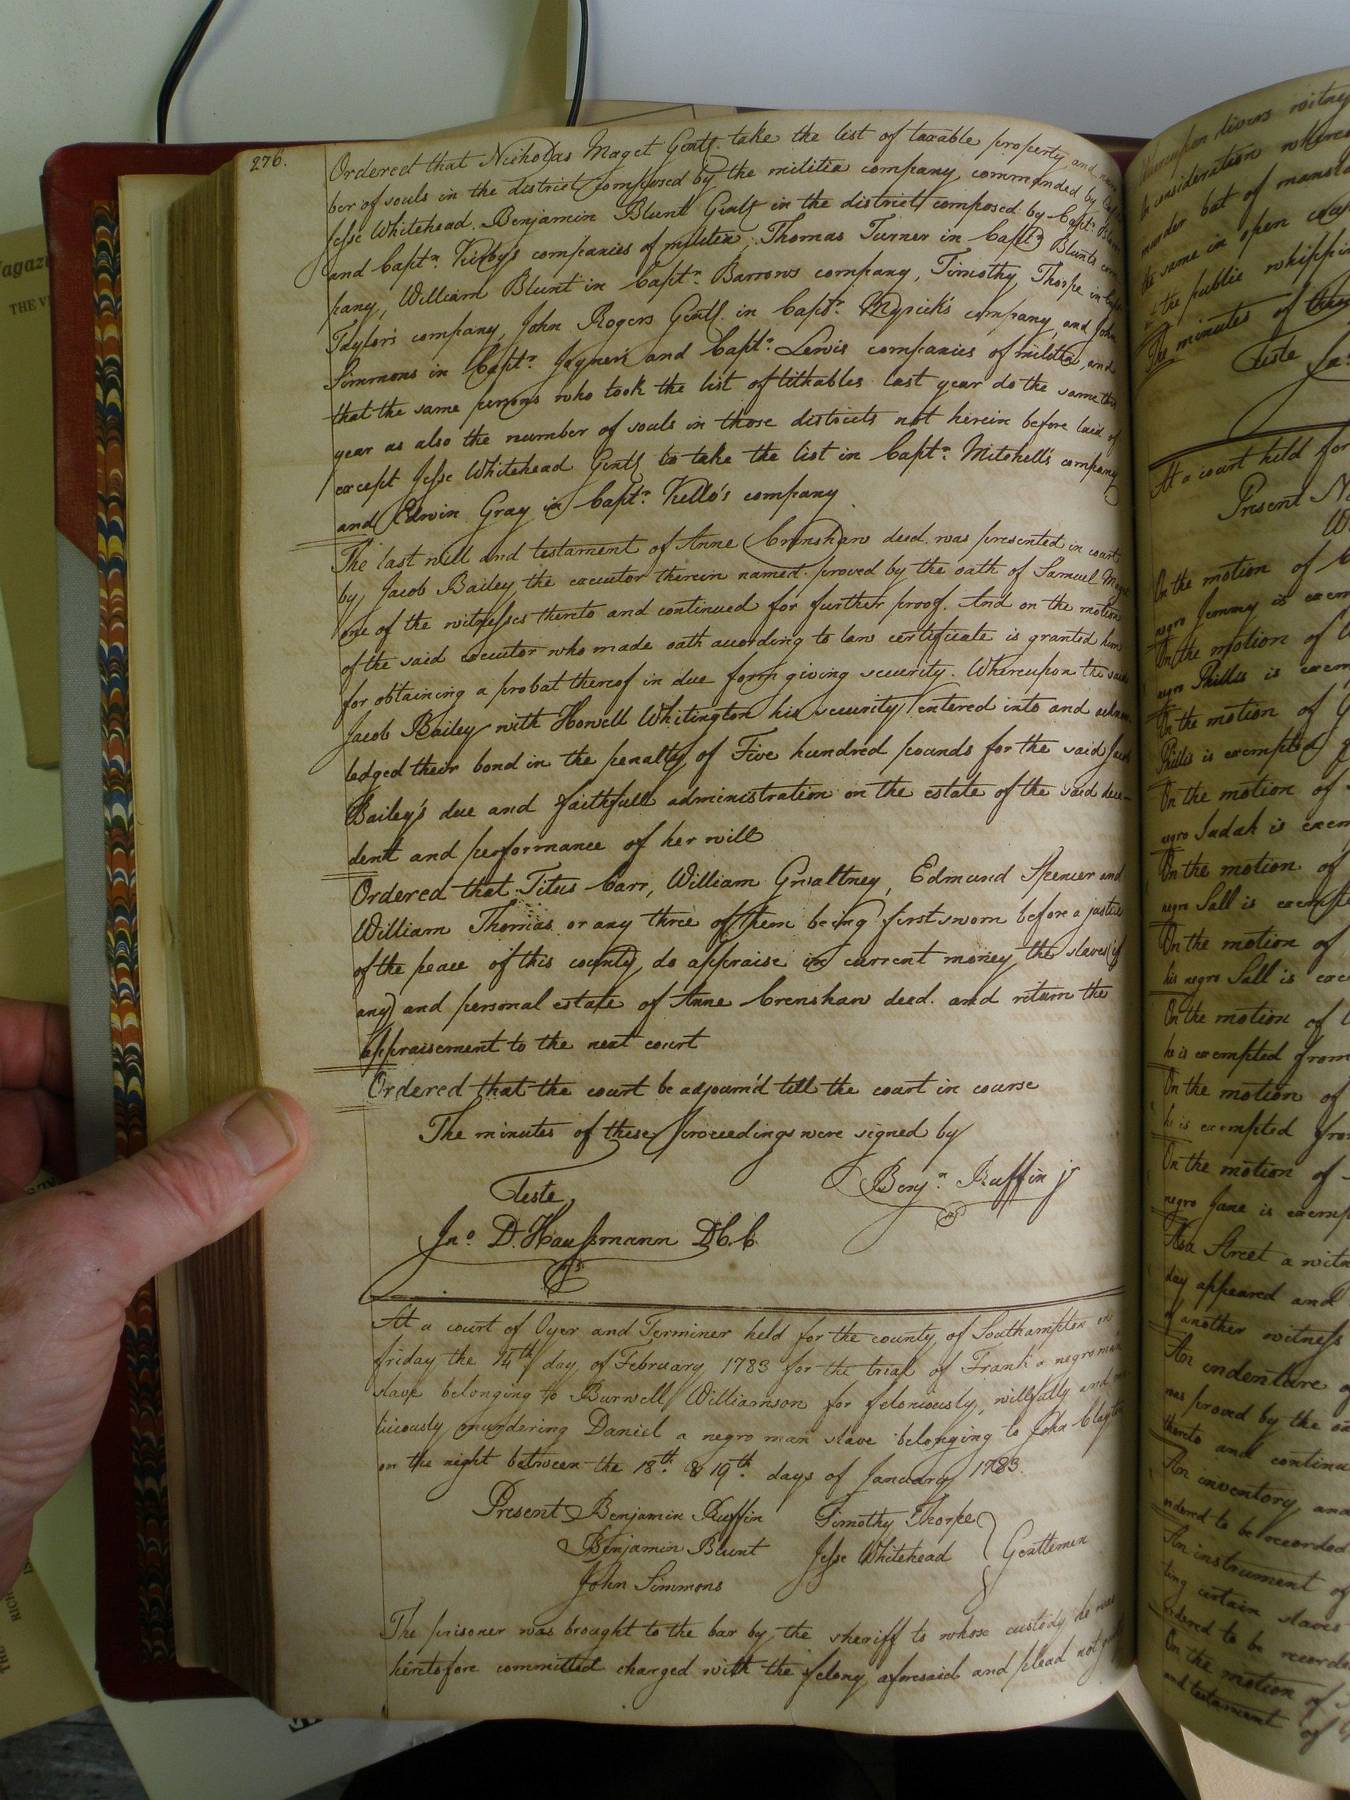 276.
Ordered that Nicholas Maget Gentl. take the list of taxable property and
ber of souls in the district composed by the militia company commanded by Capt.
Jesse Whitehead. Benjamin Blunt Gentl in the district composed by Captn.
and Captn. Kirby's companies of militia; Thomas Turner in Captn Blunts com
pany, William Blunt in Captn. Barrows company, Timothy Thorpe in Captn
Taylor's company, John Rogers Gentl. in Captn. Myrick's company, and John
Simmons in Captn. Joyner's and Captn. Lewis companies of militia, and
that the same persons who took the list of tithables last year do the same this
year as also the number of souls in those districts not herein before laid off
except Jesse Whitehead Gentl to take the list in Captn. Mitchell's company
and Edwin Gray in Captn. Kello's company
The last will and testament of Anne Crenshaw deed. was presented in court
by Jacob Bailey the executor therein named. proved by the oath of Samuel
one of the witnesses thereto and continued for further proof. And on the motion
of the said executor who made oath according to law certificate is granted him
for obtaining a probat thereof in due form giving security. Whereupon the said
Jacob Bailey with Howell Whitington his security entered into and acknow
ledged their bond in the penalty of Five hundred pounds for the said Jacob
Bailey's due and faithfull administration on the estate of the said dece-
dent and performance of her will
Ordered that Titus Carr, William Gwaltney, Edmund Spencer and
William Thomas or any three of them being first sworn before a justice
of the peace of this county, do appraise in current money the slaves (if
any) and personal estate of Anne Crenshaw deed. and return the
appraisement to the next court
Ordered that the court be adjourn'd till the court in course
The minutes of these proceedings were signed by
Benjn. Ruffin jr
Teste
Jno. D. Haussmann D.C.C
At a court of Oyer and Terminer held for the county of Southampton on
friday the 14th day of February 1783 for the trial of Frank a negro man
slave belonging to Burwell Williamson for feloniously, willfully and ma
liciously murdering Daniel a negro man slave belonging to John Clayton
on the night between the 18th. & 19th. days of January 1783.
Present Benjamin Ruffin Timothy Thorpe
Benjamin Blunt Jesse Whitehead Gentlemen
John Simmons
The prisoner was brought to the bar by the sheriff to whose custody he was
heretofore committed charged with the felony aforesaid and plead not
Whereupon divers witne
in consideration where
murder but of mansla
the same in open cou
the public whippin
The minutes of these
Teste
At a court held for
Present
On the motion of
negro Jemmy is exem
On the motion of
negro Phillis is exem
On the motion of
Phillis is exempted
On the motion of
negro Judah is exem
On the motion of
negro Sall is exempte
On the motion of
his negro Sall is exe
On the motion of
he is exempted from
On the motion of
he is exempted from
On the motion of
negro Jane is exemp
Asa Street a witn
day appeared and
of another witness
An indenture of
was proved by the oa
thereto and continu
An inventory, and
ordered to be recorded
An instrument of
ting certain slaves
ordered to be recorde
On the motion of
and testament of